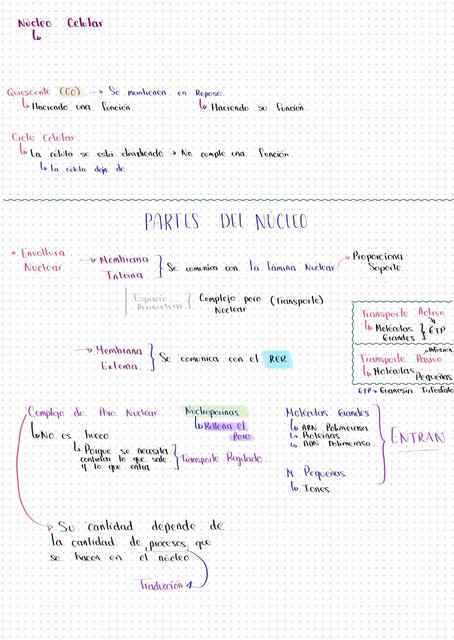 Núcleo Celular
Quiescente (G0) → Se mantienen en Reposo
Haciendo una función
Haciendo su función
Ciclo Celular
La célula se está dividiendo → No cumple una función
La célula deja de
PARTES DEL NÚCLEO
Envoltura Nuclear
Membrana Interna
Se comunica con la lámina Nuclear
Proporciona Soporte
Espacio Perinuclear
Complejo poro (Transporte)
Nuclear
Transporte Activo
Moléculas Grandes
GTP
Difusión
Transporte Pasivo
Moléculas Pequeñas
GTP → Guanosín Trifosfato
Membrana Externa
Se comunica con el RER
Complejo de Poro Nuclear
No es hueco
Porque se necesita
controlar lo que sale
y lo que entra
Transporte Regulado
Nucleoporinas
Rellena el Poro
Moléculas Grandes
ARN Polimerasa
Proteínas
ADN Polimerasa
M. Pequeñas
Iones
ENTRAN
Su cantidad depende de
la cantidad de procesos que
se hacen en el núcleo
Traducción